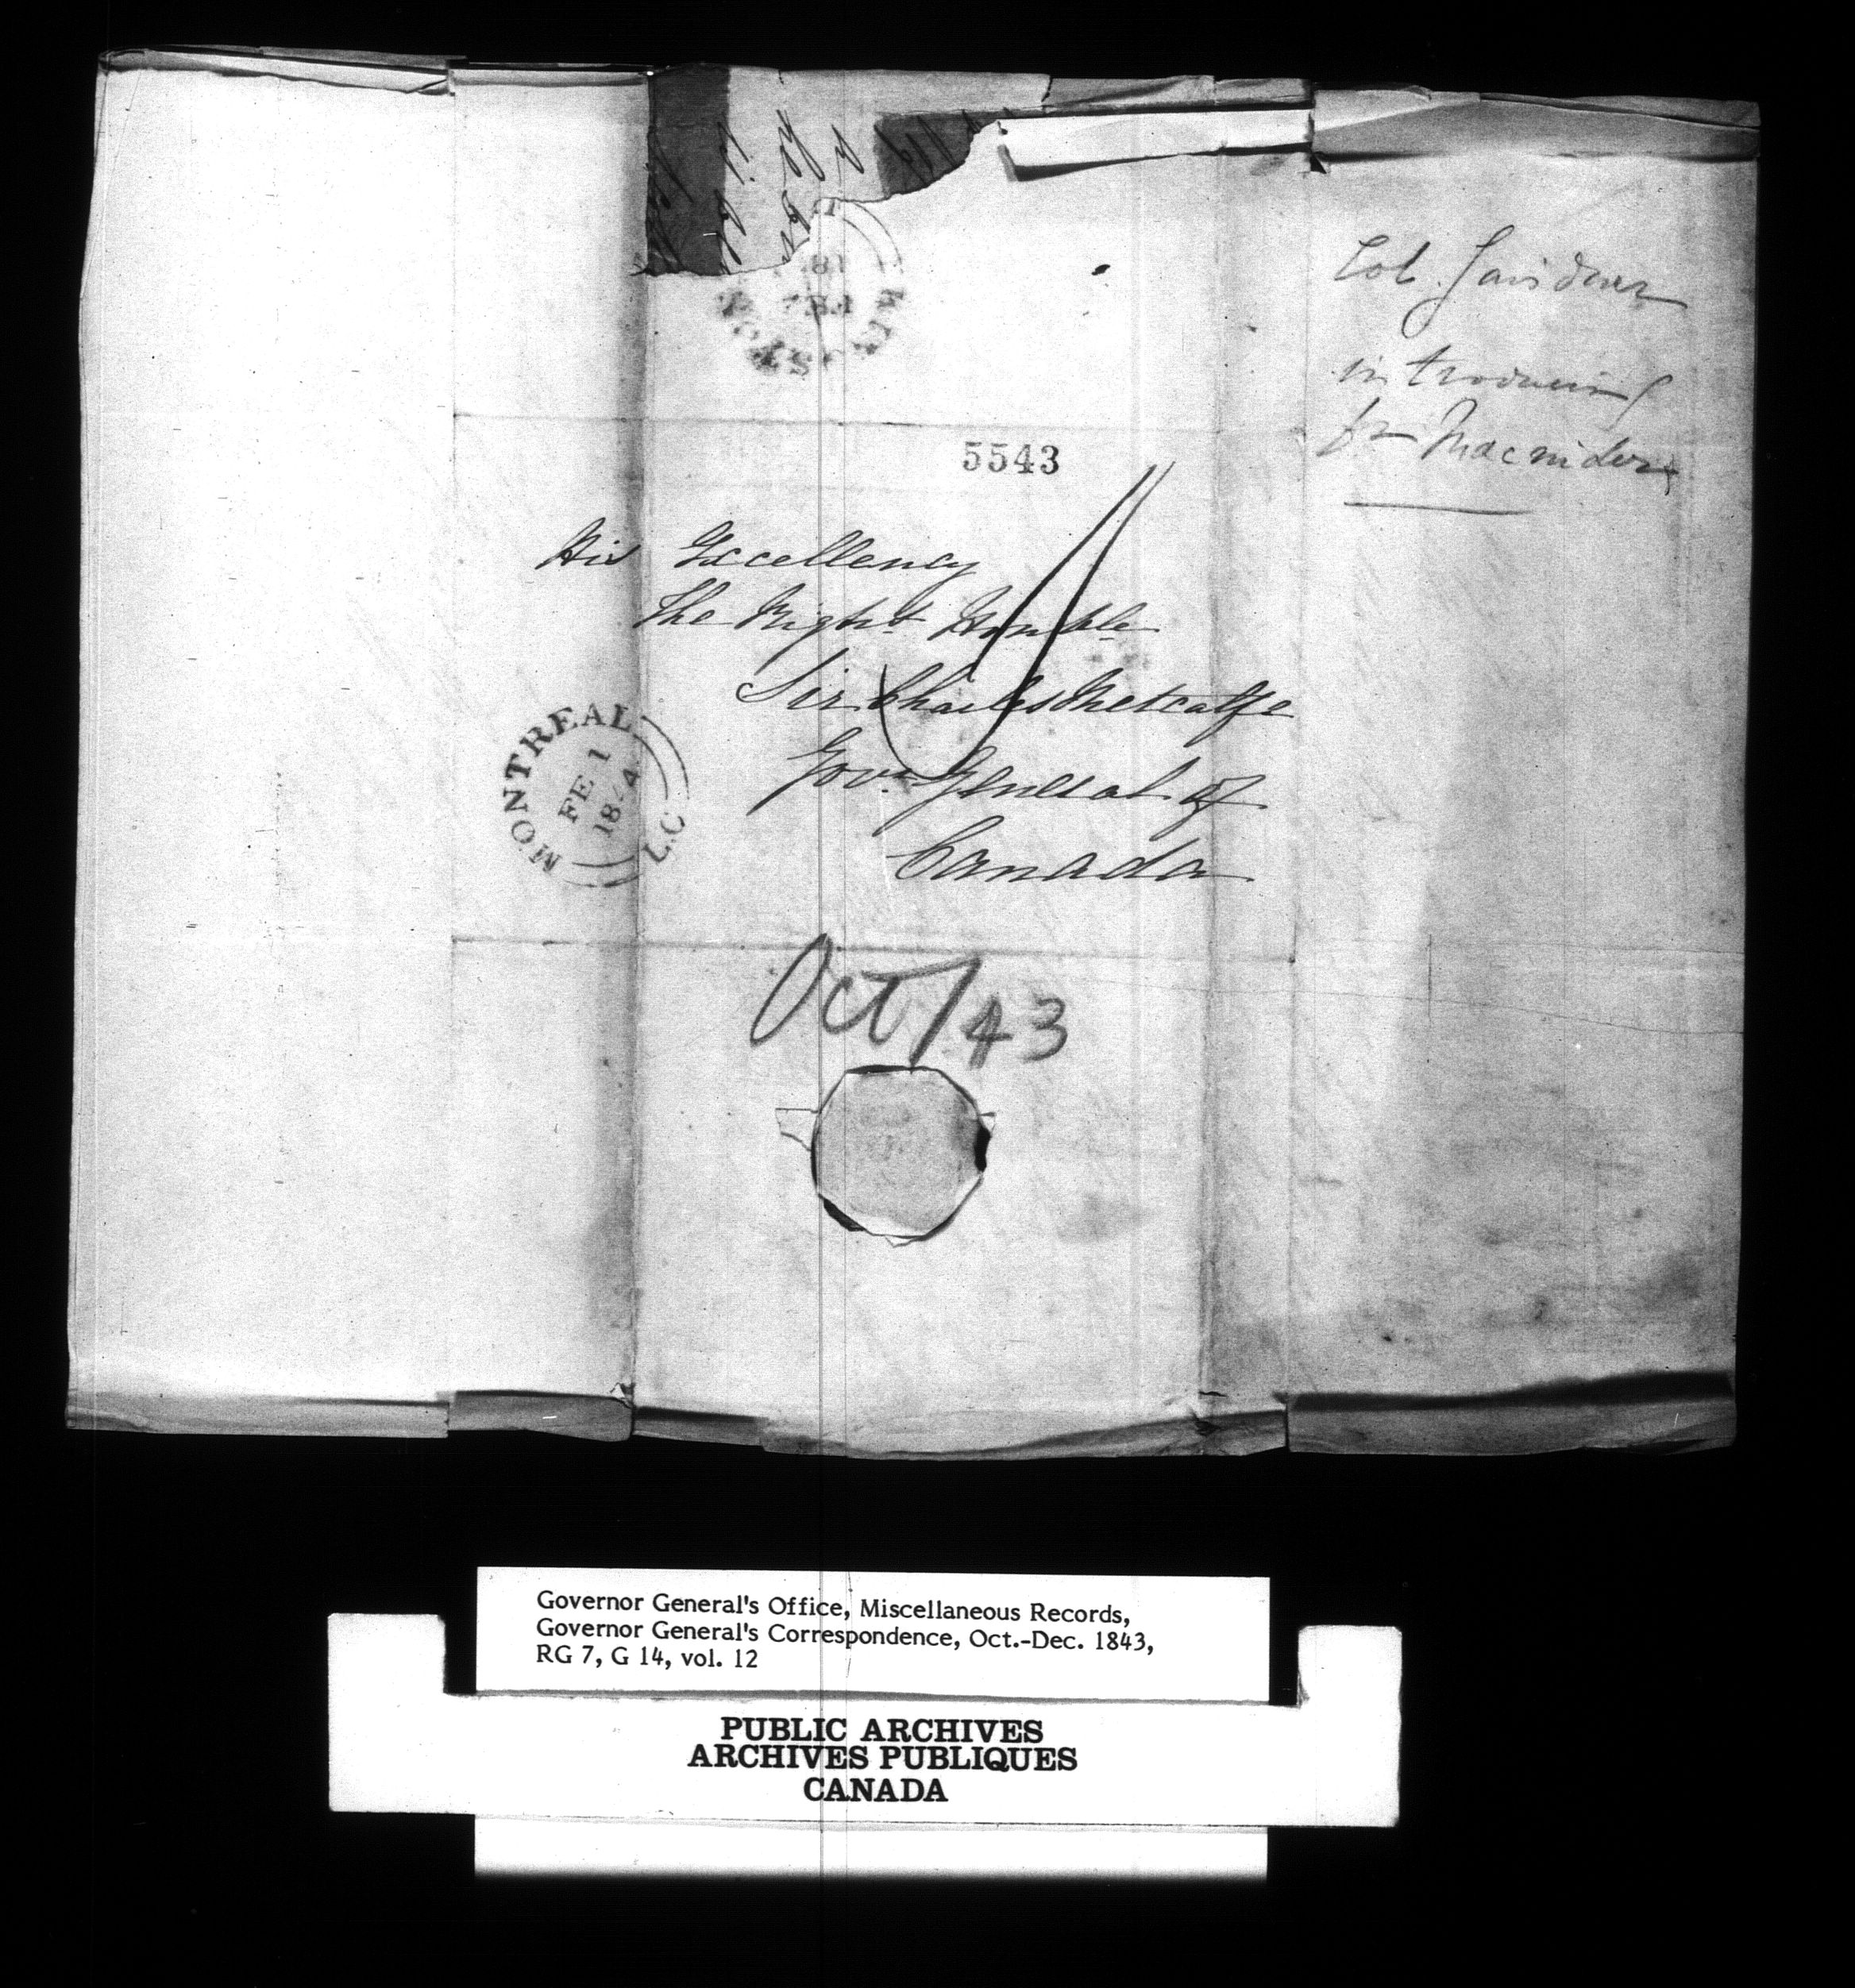 Col.
introducing
Dr Macnider
5543
His Excellency
The Right Honble
Sir Charles Metcalfe
Govr. General of
Canada
MONTREAL
FE 1
1844
L.C
Oct/43
Governor General's Office, Miscellaneous Records,
Governor General's Correspondence, Oct.-Dec. 1843,
RG 7, G 14, vol. 12
PUBLIC ARCHIVES
ARCHIVES PUBLIQUES
CANADA